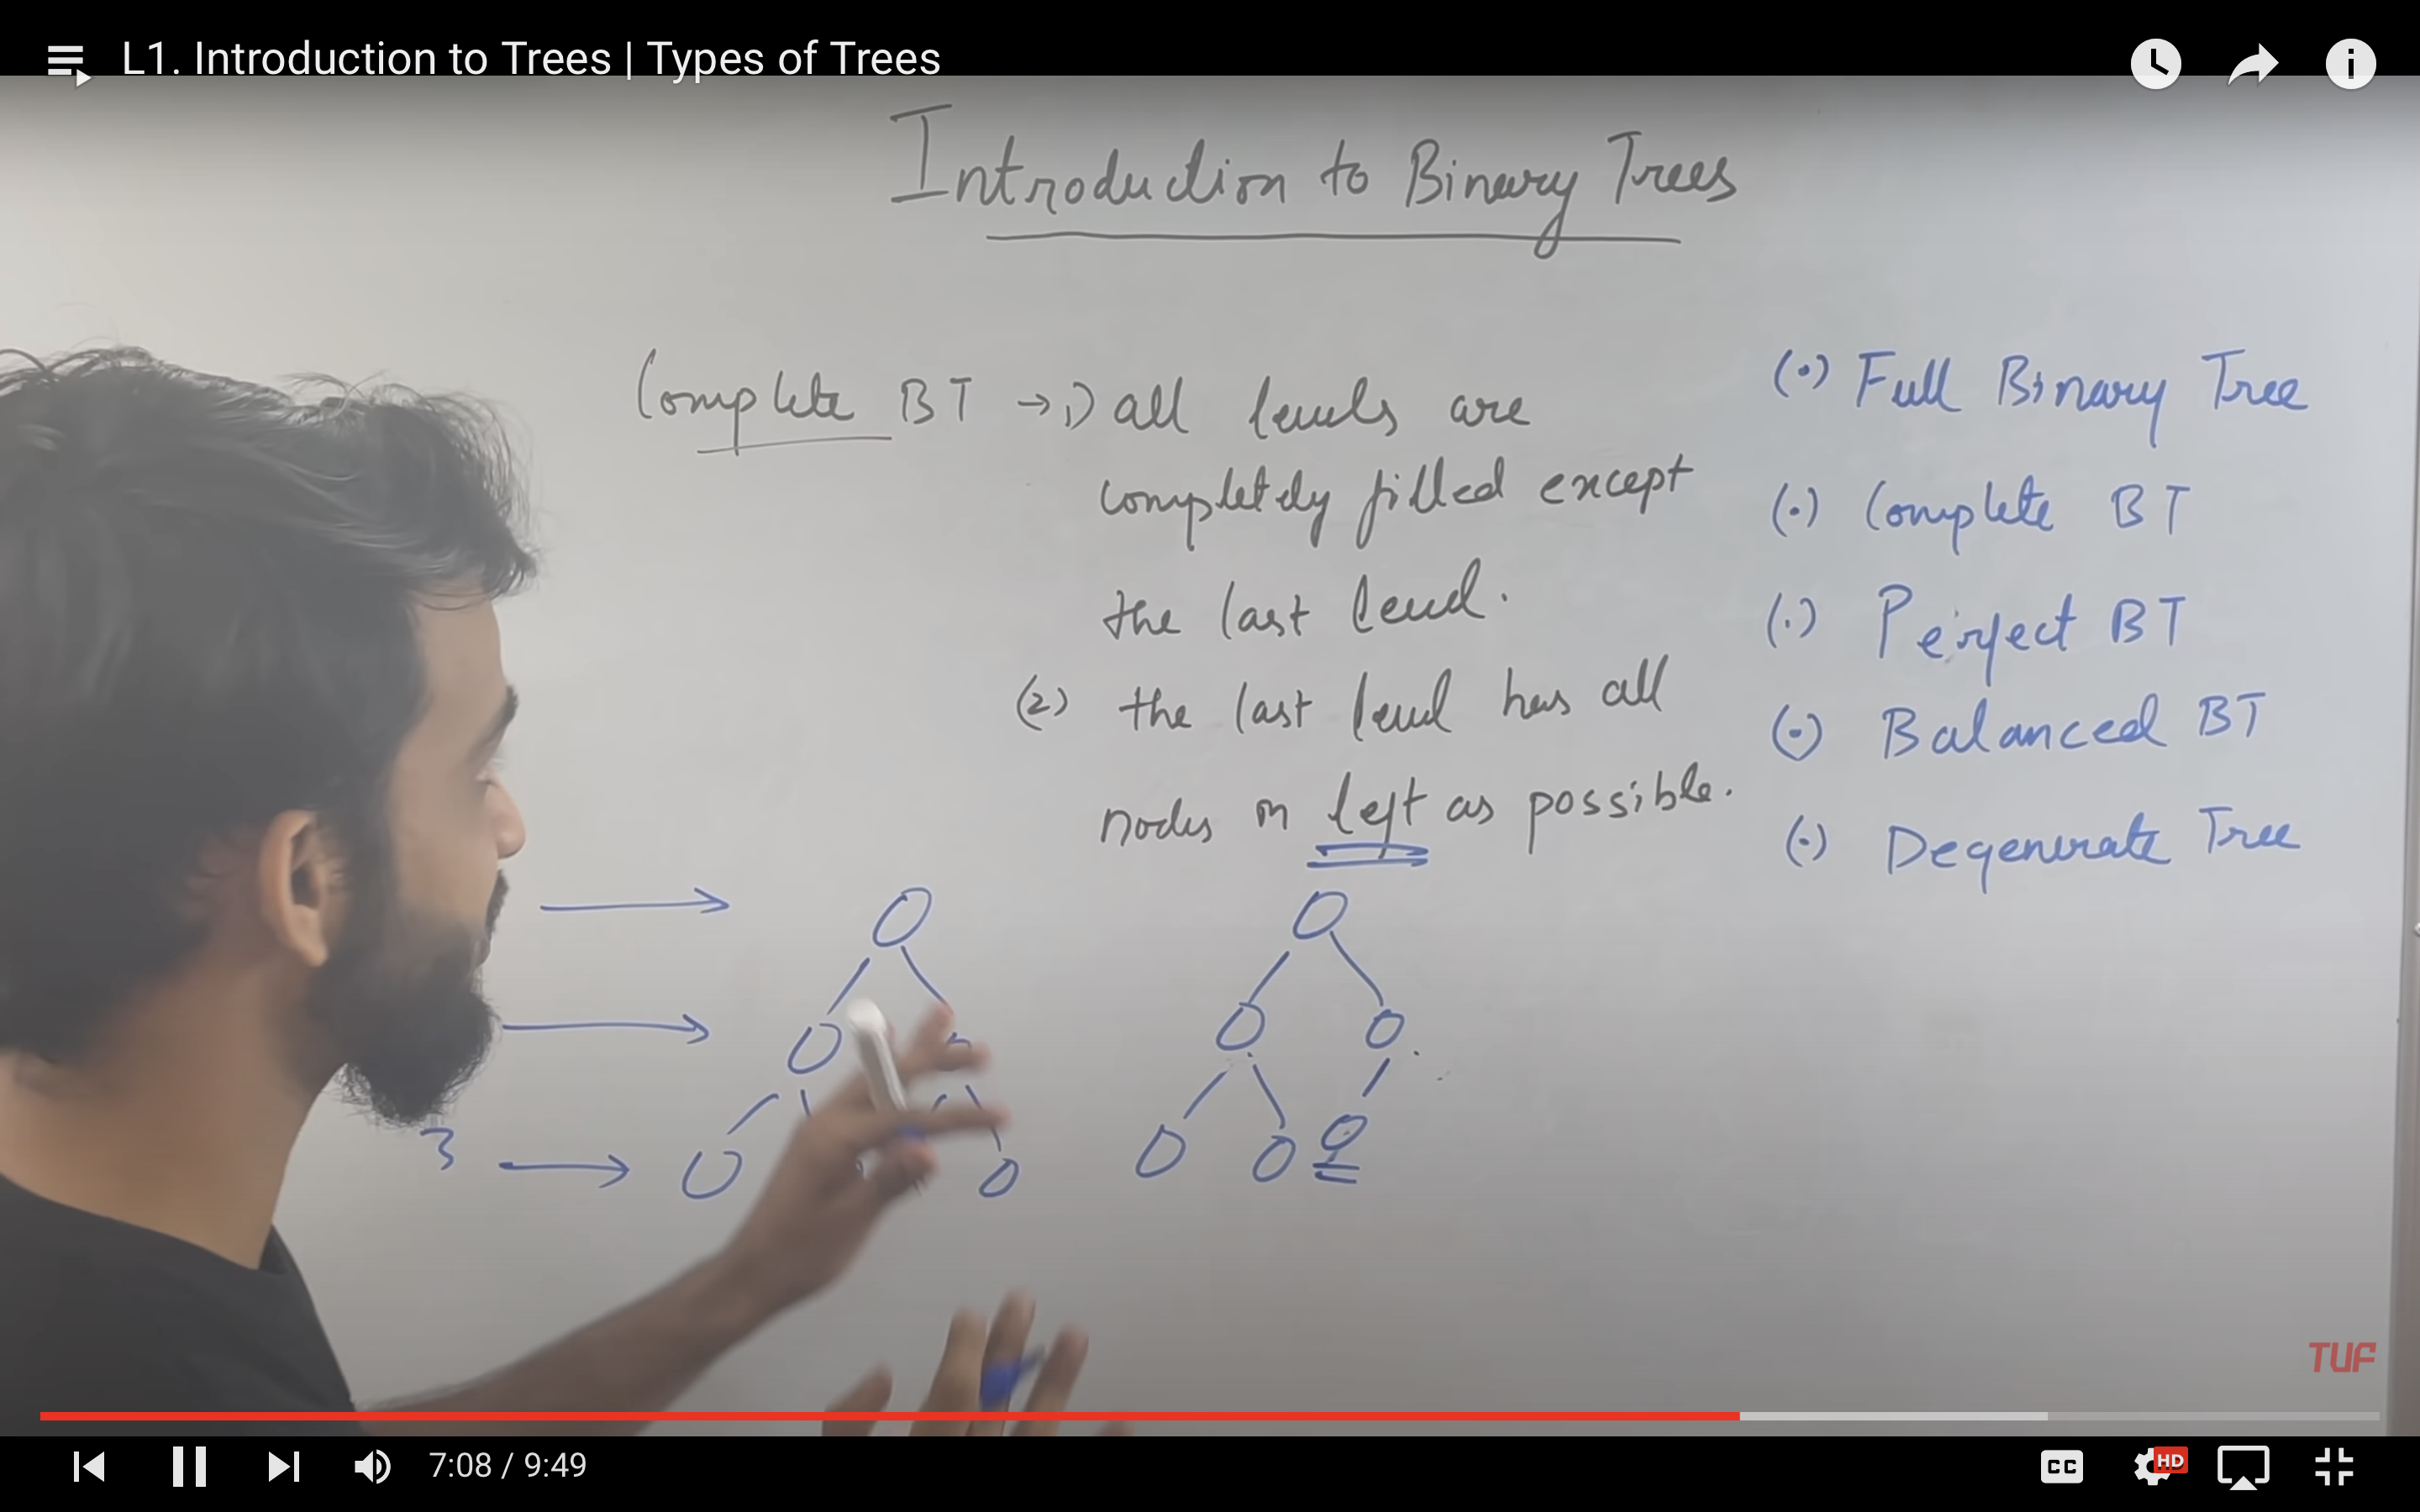 L1. Introduction to Trees | Types of Trees
Introduction to Binary Trees
Complete BT → 1) all levels are
completely filled except
the last level.
(2) the last level has all
nodes on left as possible.
(•) Full Binary Tree
(•) Complete BT
(•) Perfect BT
(•) Balanced BT
(•) Degenerate Tree
3
TUF
7:08 / 9:49
CC
HD